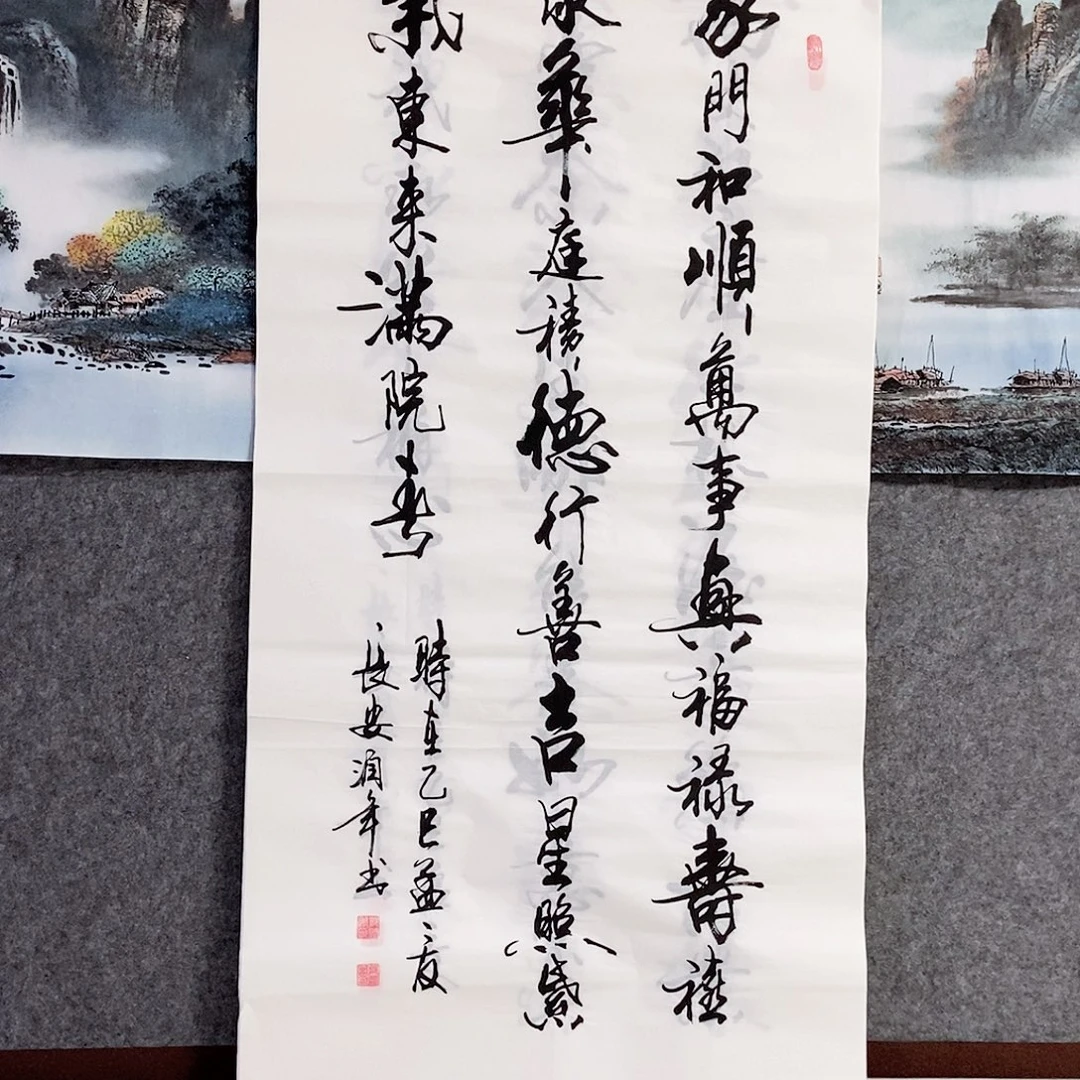 家門和順萬事興福禄壽禧
家華庭禧德行善吉星照紫
氣東来滿院春
時在乙巳孟夏
長安润年书